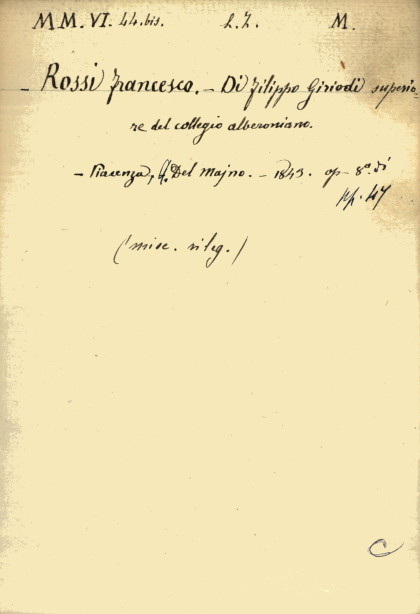 MM. VI. 44. bis. L. I. M.
– Rossi Francesco. – Di Filippo Giriodi superio-
re del collegio alberoniano.
– Piacenza, f. Del Majno. – 1843. op– 8º. di
pp. 47
(misc. rileg.)
C